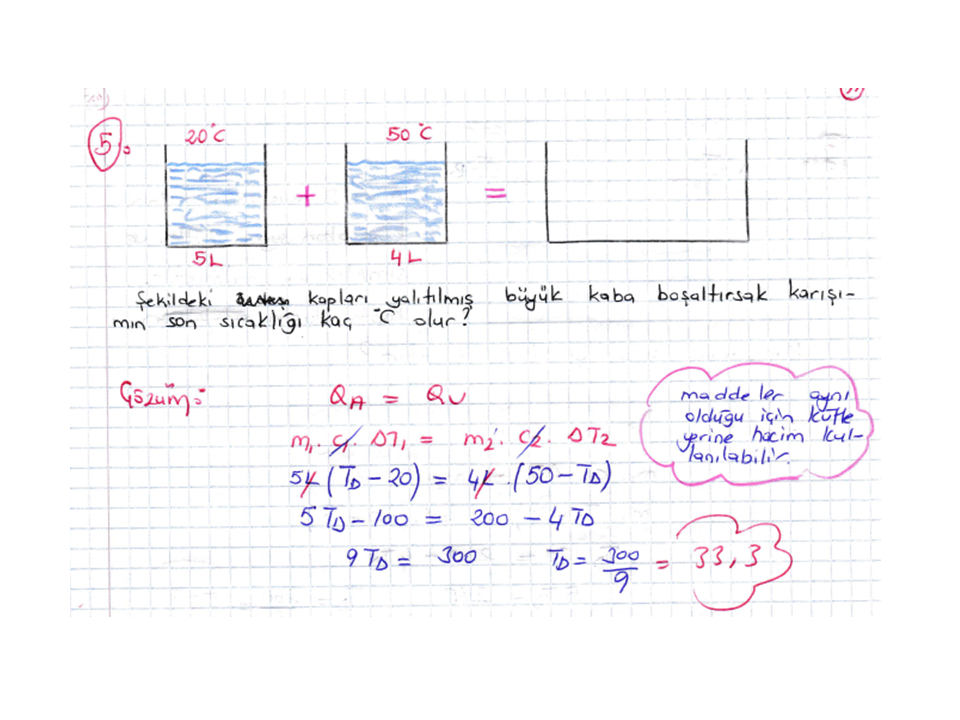 5.
20°C
50°C
+
=
5L
4L
Şekildeki kapları yalıtılmış büyük kaba boşaltırsak karışı-
mın son sıcaklığı kaç °C olur?
Çözüm:
QA = QV
m1. c1. ΔT1 = m2. c2. ΔT2
5k (TD - 20) = 4k. (50 - TD)
5 TD - 100 = 200 - 4 TD
9 TD = 300 TD = 300/9 = 33,3
maddeler aynı
olduğu için kütle
yerine hacim kul-
lanılabilir.